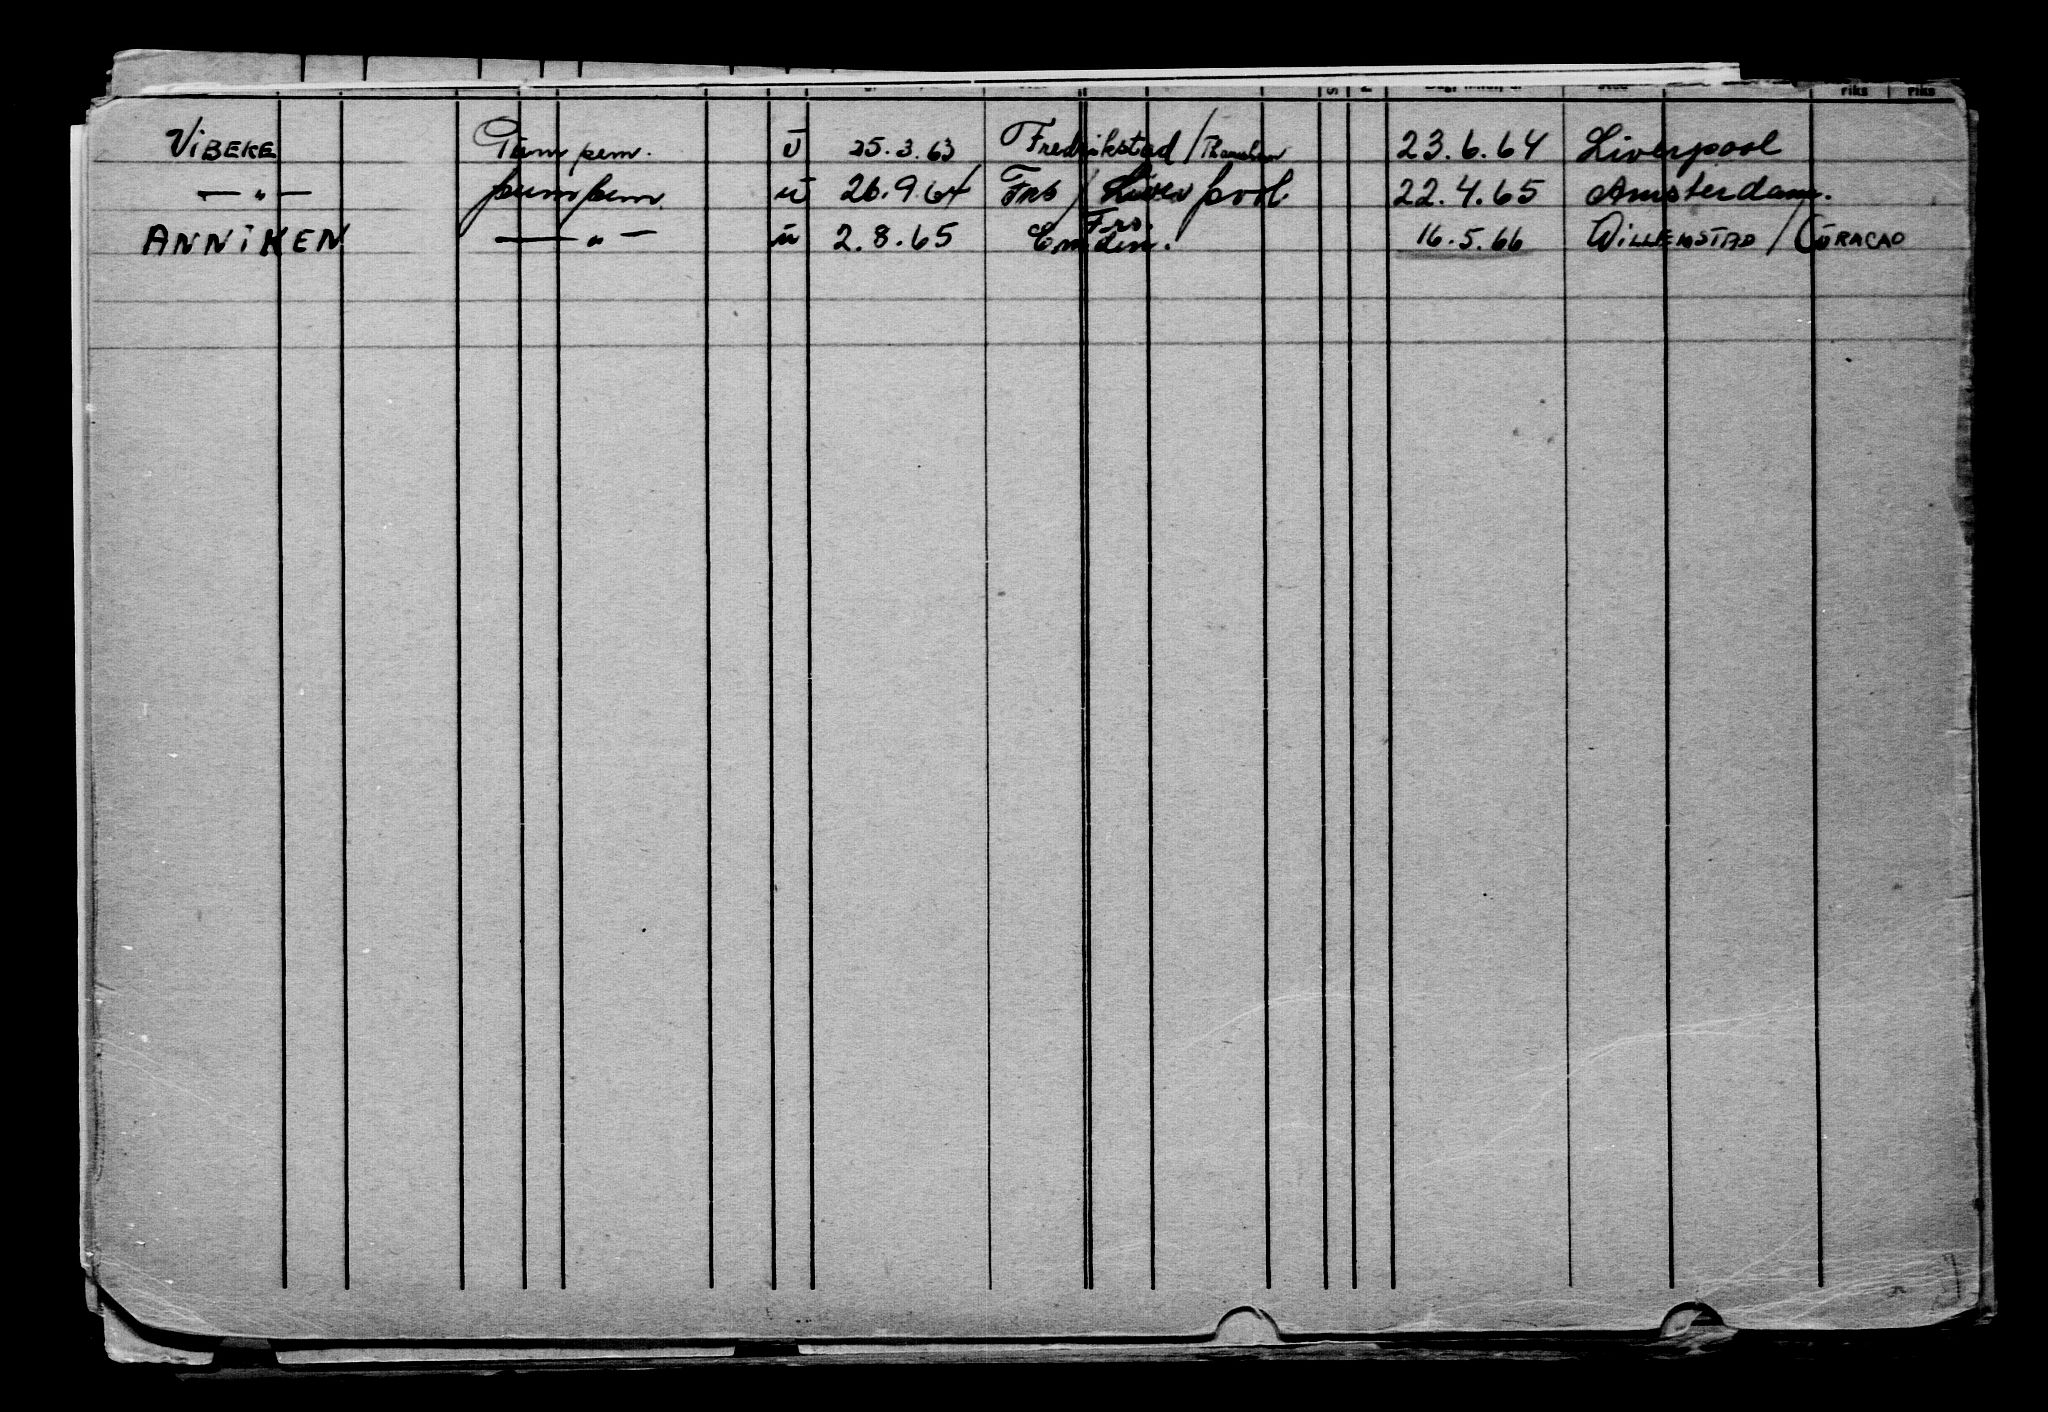 Riks Riks
VIBEKE Pumpem. u 25.3.63 Fredrikstad / 23.6.64 Liverpool
— " — pumpem. u 26.9.64 Frs / Liverpool. 22.4.65 Amsterdam.
Frs.
ANNIKEN — " — u 2.8.65 Emden. 16.5.66 WILLEMSTAD / CURACAO